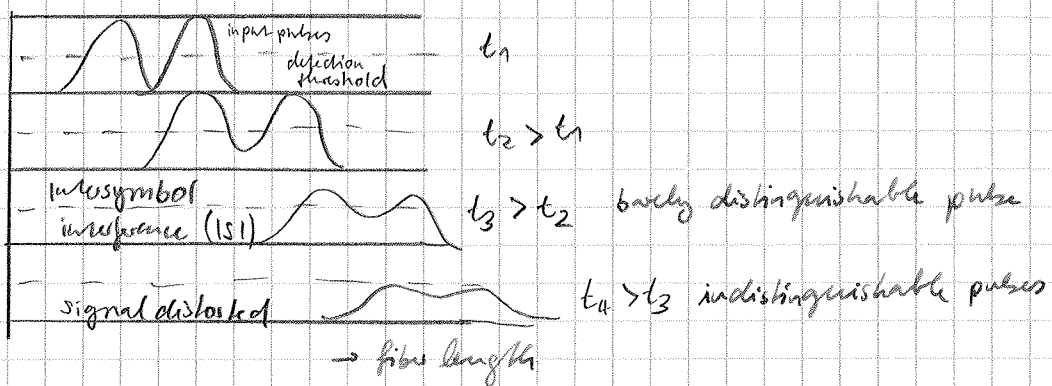 input pulses
detection
threshold
t₁
t₂ > t₁
Intersymbol
interference (ISI)
t₃ > t₂ barely distinguishable pulse
signal distorted
t₄ > t₃ indistinguishable pulses
→ fiber length